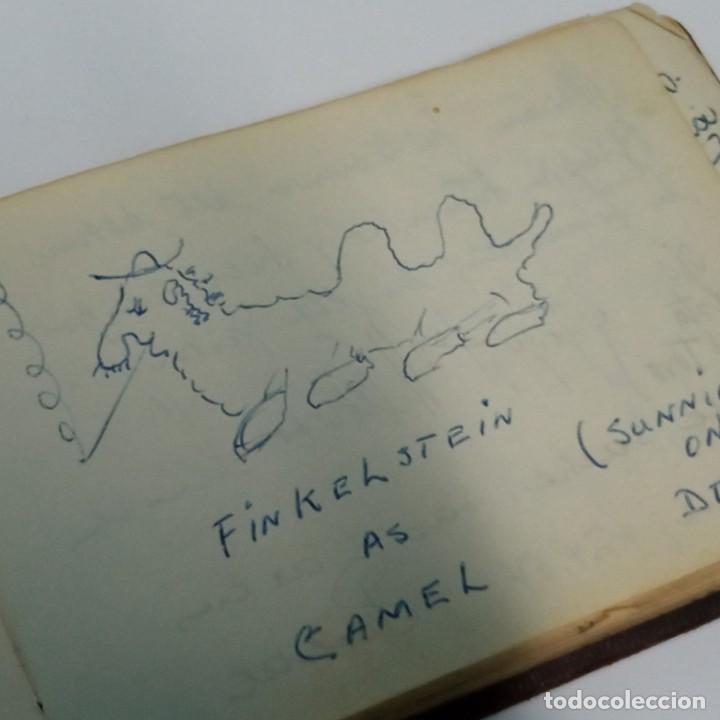 FINKELSTEIN
AS
CAMEL
(SUNNI
ON
D
todocoleccion